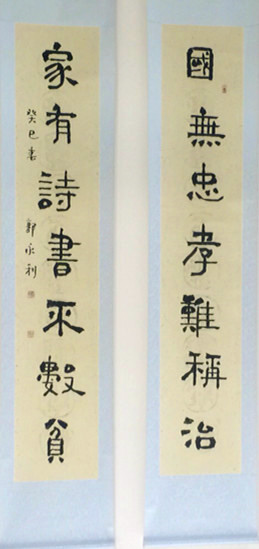 國無忠孝難稱治
家有詩書不數貧
癸巳書 郭永利